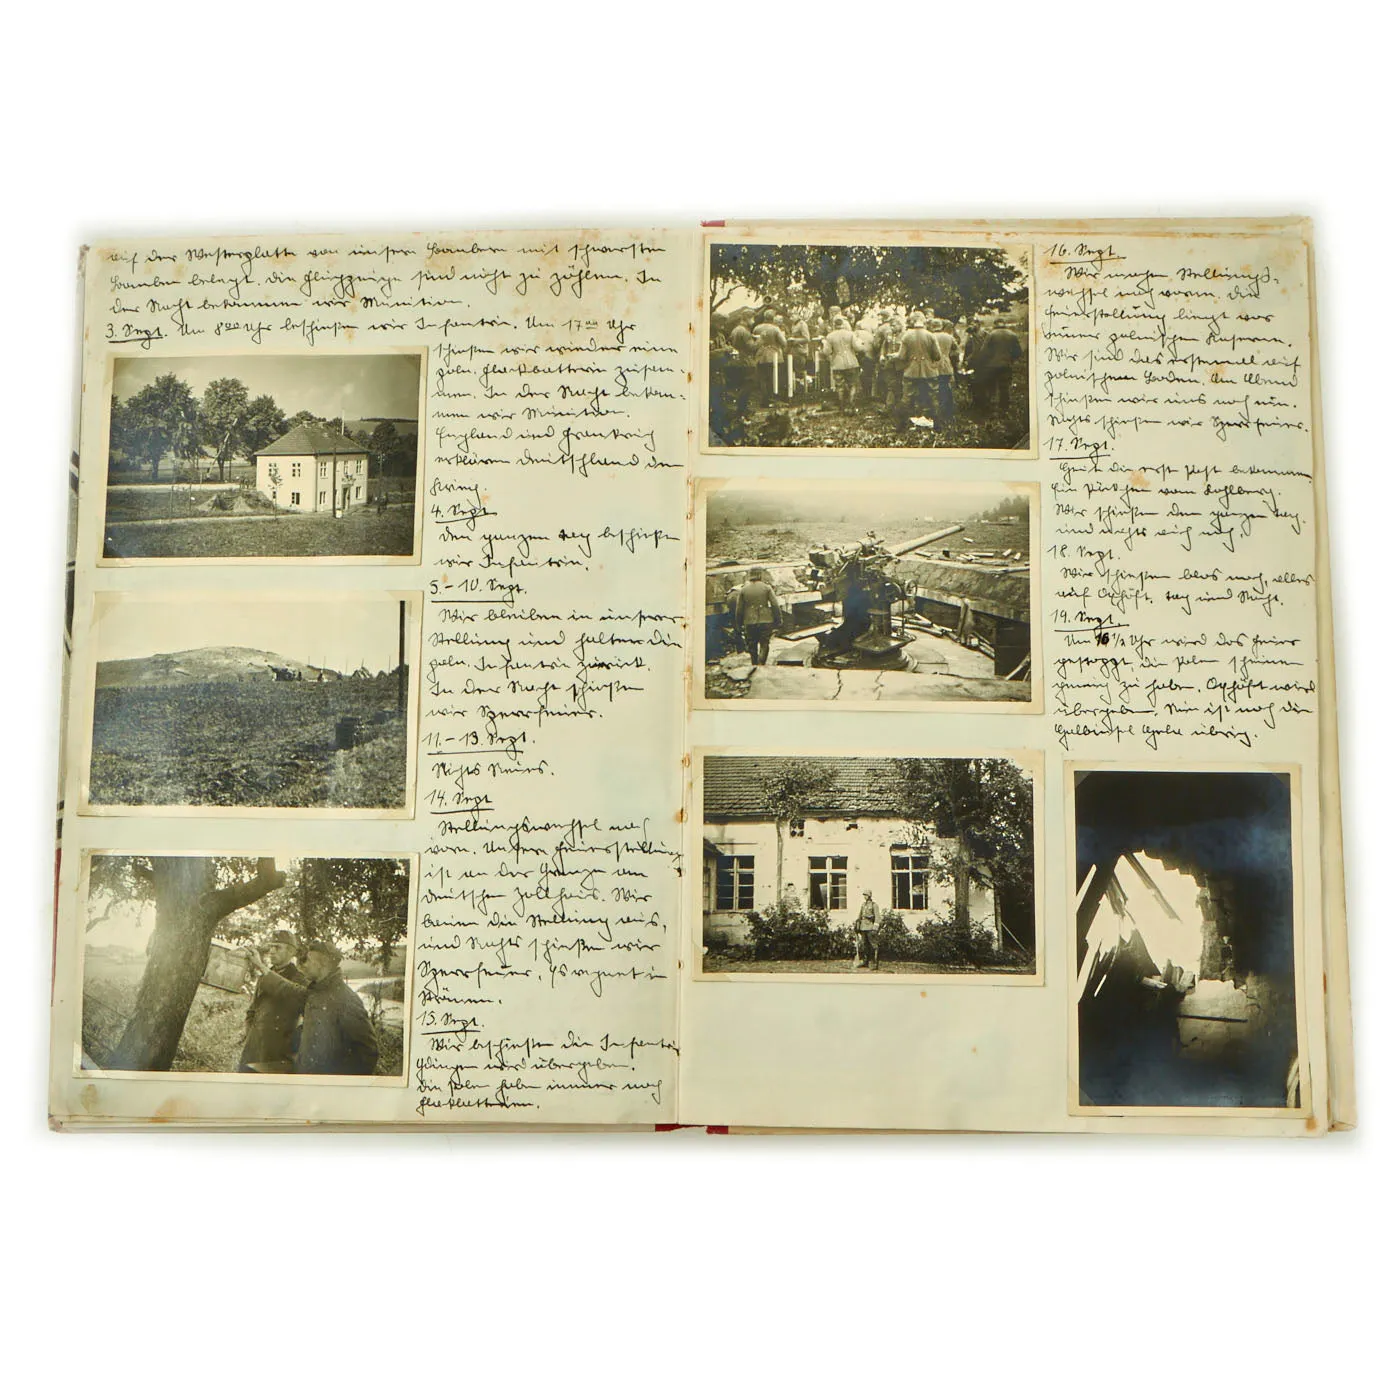 auf der Westerplatte von unsern Bombern mit schwersten
Bomben belegt. Die Flugzeuge sind nicht zu zählen. In
der Nacht bekommen wir Munition.
3. Sept. Um 8 Uhr beschießen wir Infantrie. Um 17 Uhr
schießen wir wieder eine
poln. Flackbatterie zusam-
men. In der Nacht bekom-
men wir Munition.
England und Frankreich
erklären Deutschland den
Krieg.
4. Sept.
Den ganzen Tag beschießen
wir Infantrie.
5. – 10. Sept.
Wir bleiben in unserer
Stellung und halten die
poln. Infantrie zurück.
In der Nacht schießen
wir Sperrfeuer.
11. – 13. Sept.
Nichts Neues.
14. Sept
Stellungswechsel nach
vorn. Unsere Feuerstellung
ist an der Grenze am
deutschen Zollhaus. Wir
bauen die Stellung aus,
und Nachts schießen wir
Sperrfeuer. Es regnet in
Strömen.
15. Sept.
Wir beschießen die Infantrie
Gdingen wird übergeben.
Die Polen haben immer noch
Flackbatterien.
16. Sept.
Wir machen Stellungs-
wechsel nach vorn. Die
Feuerstellung liegt vor
einer polnischen Kaserne.
Wir sind das erstemal auf
polnischem Boden. Am Abend
schießen wir uns noch ein.
Nachts schießen wir Sperrfeuer.
17. Sept.
Heute die erste Post bekommen
Ein Päckchen vom Kohlberg.
Wir schießen den ganzen Tag.
und nachts auch noch.
18. Sept.
Wir schießen blos noch, alles
auf Oxhöft. Tag und Nacht.
19. Sept.
Um 16 1/2 Uhr wird das Feuer
gestoppt, die Polen scheinen
genug zu haben. Oxhöft wird
übergeben. Nun ist noch die
Halbinsel Hela übrig.